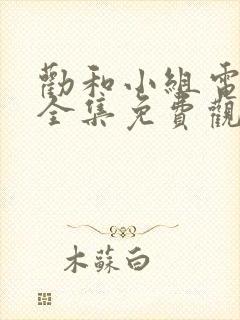 勸和小組電
全集免費觀
木蘇白